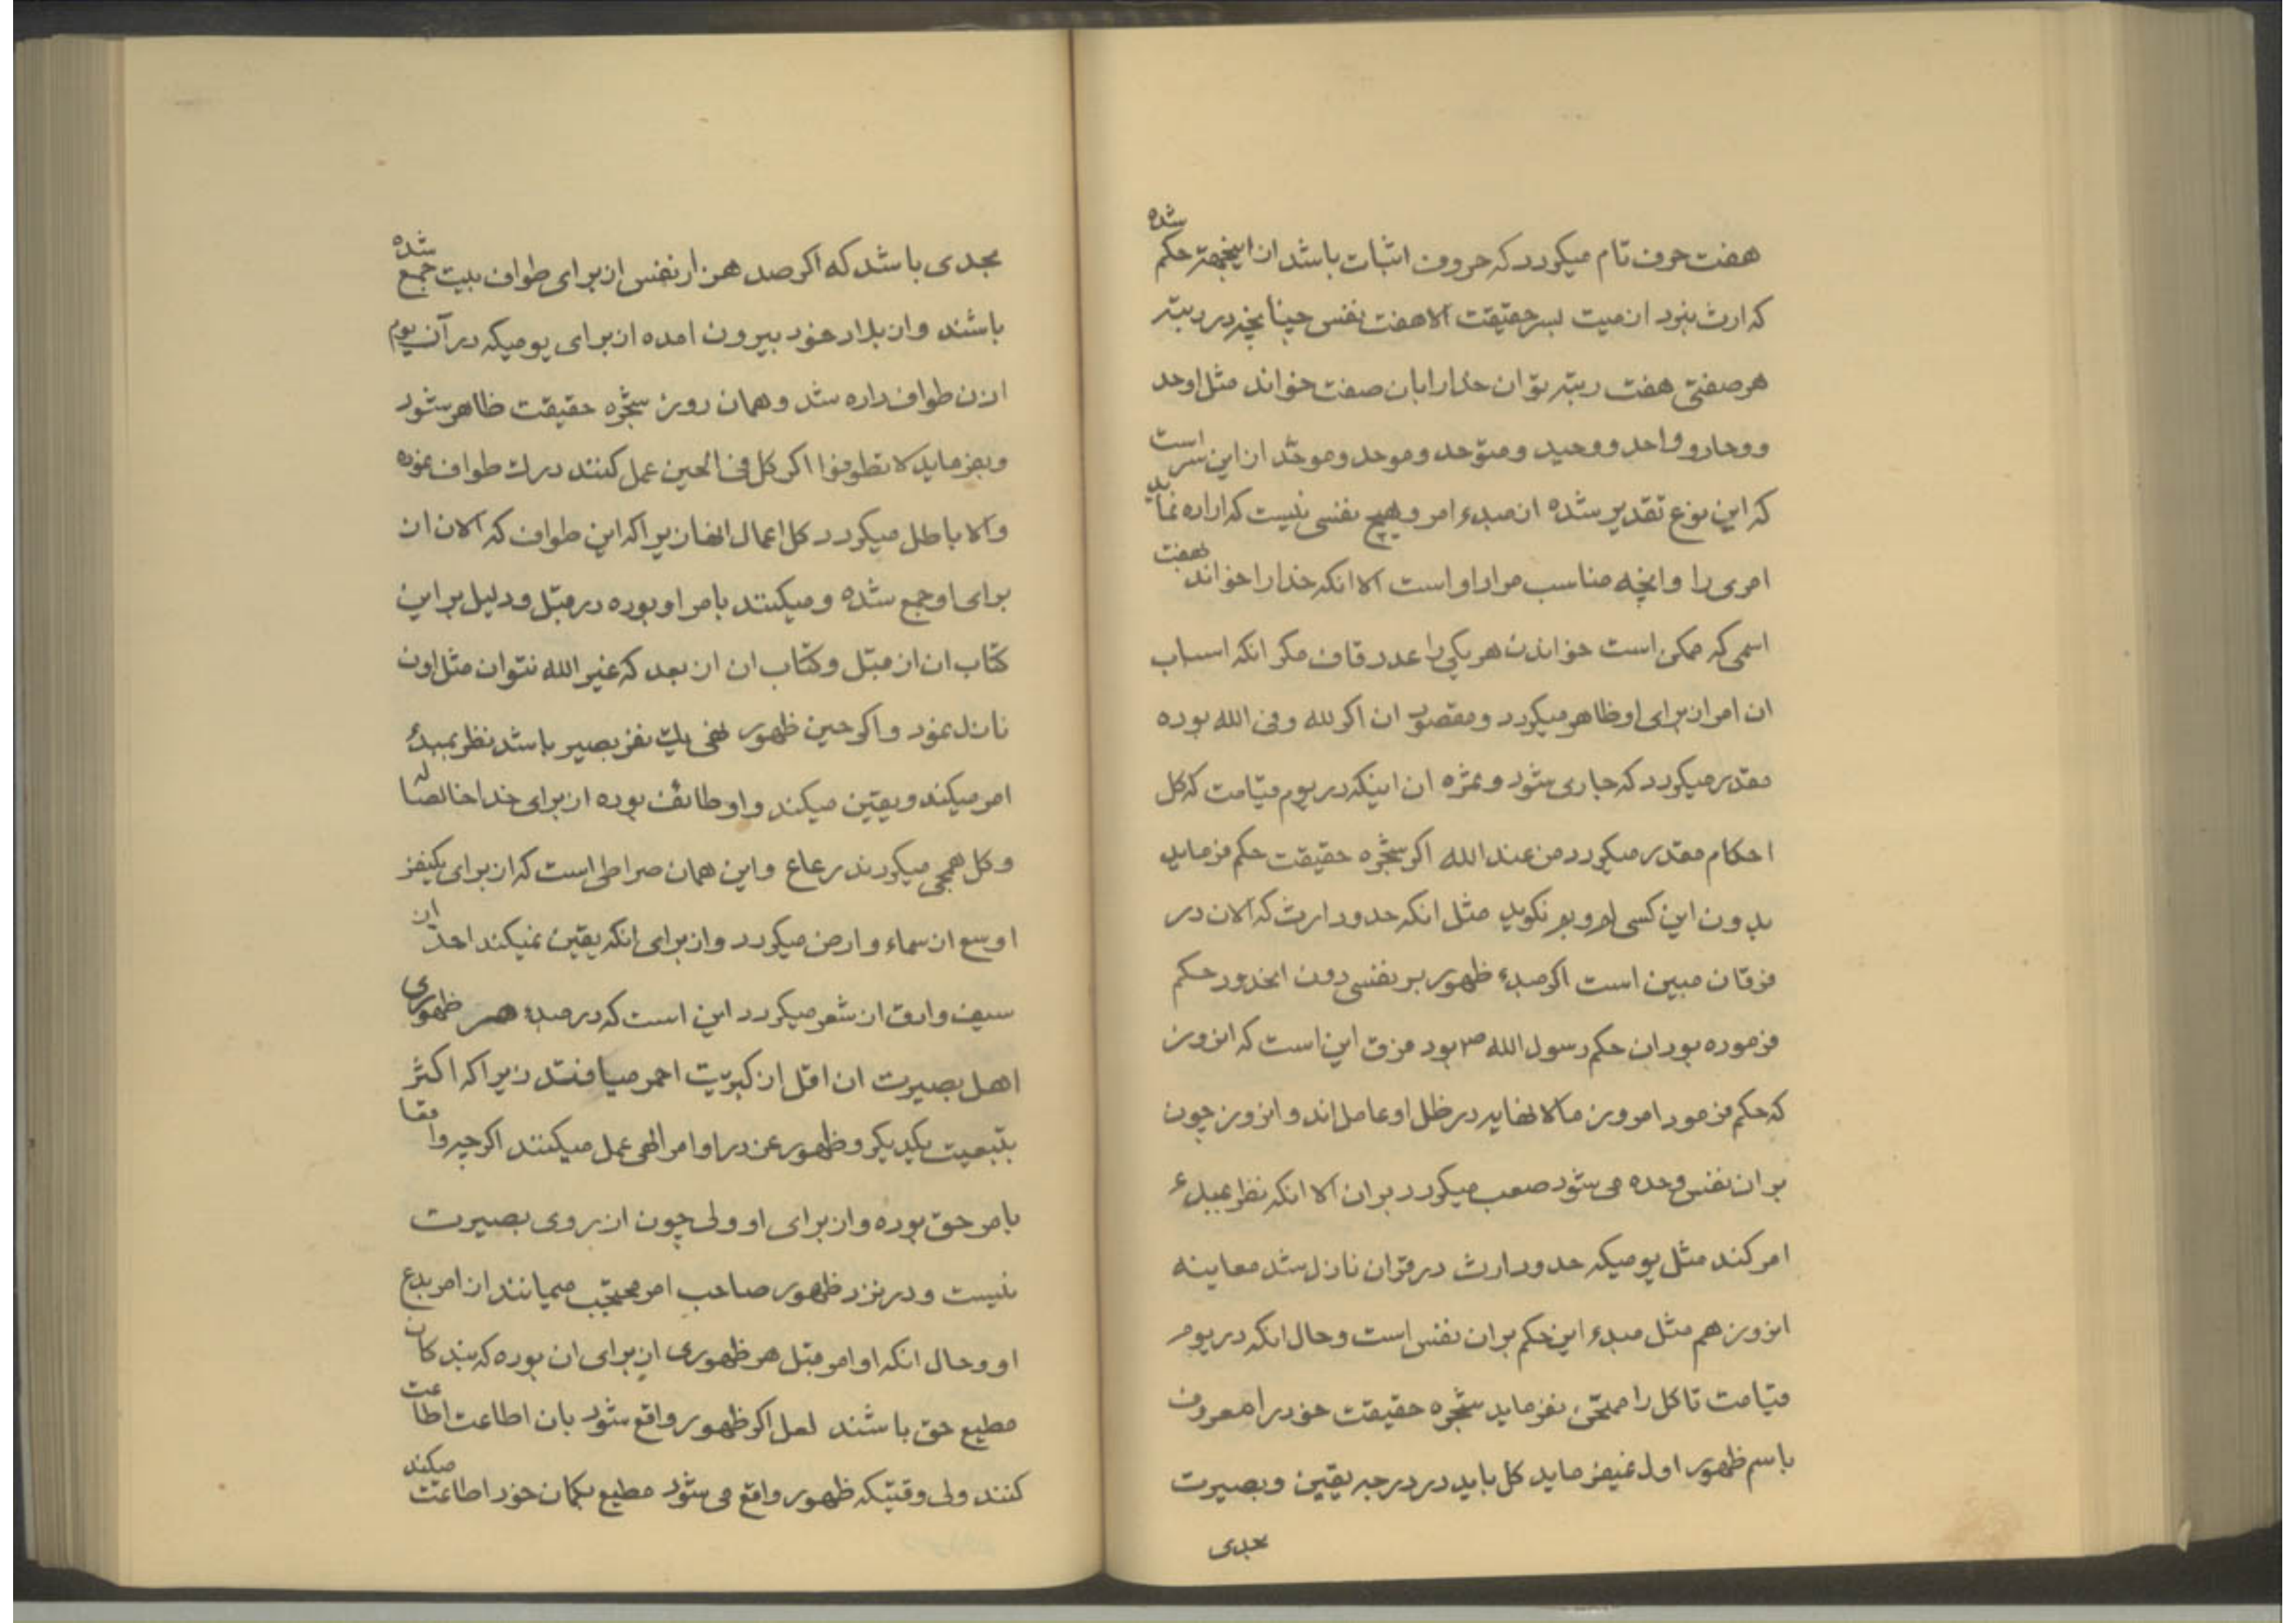 هفت حرف تام میکردد که حروف اثبات باشد از اینجهة حکم شده
که ارث نبرد از میت بسر حقیقت الا هفت نفس چنانچه در رتبه
هر صفتی هفت رتبه توان خدا را بان صفت خواند مثل اوحد
ووحاد و واحد ووحید ومتوحد وموحد وموحَّد از این سر است
که این نوع تقدیر شده از مبدء امر وهیچ نفسی نیست که اراده نماید
امری را وانچه مناسب مراد او است الا انکه خدا را خواند بهفت
اسمی که ممکن است خواندن هر یکی را عدد قاف مکر انکه اسباب
ان امر از برای او ظاهر میکردد ومقصود ان اکر لله وفی الله بوده
مقدر میکردد که جاری شود وثمره ان اینکه در یوم قیامت که کل
احکام مقدر میکردد من عند الله اکر شجره حقیقت حکم فرماید
بدون این کسی لم وبم نکوید مثل انکه حدود ارث که الان در
فرقان مبین است اکر مبدء ظهور بر نفسی دون انحدود حکم
فرموده بود ان حکم رسول الله ص بود فرق این است که انروز
که حکم فرمود امروز ما لا نهایه در ظل او عامل اند وانروز چون
بر ان نفس وحده می شود صعب میکردد بر ان الا انکه نظر بمبدء
امر کند مثل یومیکه حدود ارث در قران نازل شد معاینه
انروز هم مثل مبدء این حکم بر ان نفس است وحال انکه در یوم
قیامت تا کل را ممتحن نفرماید شجره حقیقت خود را معروف
باسم ظهور اول نمیفرماید کل باید در درجه یقین وبصیرت
بحدی
بحدی باشد که اکر صد هزار نفس از برای طواف بیت جمع شده
باشند واز بلاد خود بیرون امده از برای یومیکه در آن یوم
اذن طواف داده شد وهمان روز شجره حقیقت ظاهر شود
وبفرماید لا تطوفوا اکر کل فی الحین عمل کنند درك طواف نموده
والا باطل میکردد کل اعمال انها زیرا که این طواف که الان از
برای او جمع شده ومیکنند بامر او بوده در قبل ودلیل بر این
کتاب ان از قبل وکتاب ان از بعد که غیر الله نتوان مثل اون
نازل نمود واکر حین ظهور نهی یك نفر بصیر باشد نظر بمبدء
امر میکند ویقین میکند واو طائف بوده از برای خدا خالصا له
وکل همجی میکردند رعاع واین همان صراطی است که از برای یکنفر
اوسع از سماء وارض میکردد واز برای انکه یقین نمیکند احدّ از
سیف وادق از شعر میکردد این است که در مبدء هر ظهوری
اهل بصیرت ان اقل از کبریت احمر میباشند زیرا که اکثر
بتبعیت یکدیکر وظهور عز در اوامر الهی عمل میکنند اکرچه واقعا
بامر حق بوده واز برای او ولی چون از روی بصیرت
نیست ودر نزد ظهور صاحب امر محتجب میمانند از امر بدع
او وحال انکه اوامر قبل هر ظهوری از برای ان بوده که بندکان
مطیع حق باشند لعل اکر ظهور واقع شود بان اطاعت اطاعت
کنند ولی وقتیکه ظهور واقع می شود مطیع بکمان خود اطاعت میکند